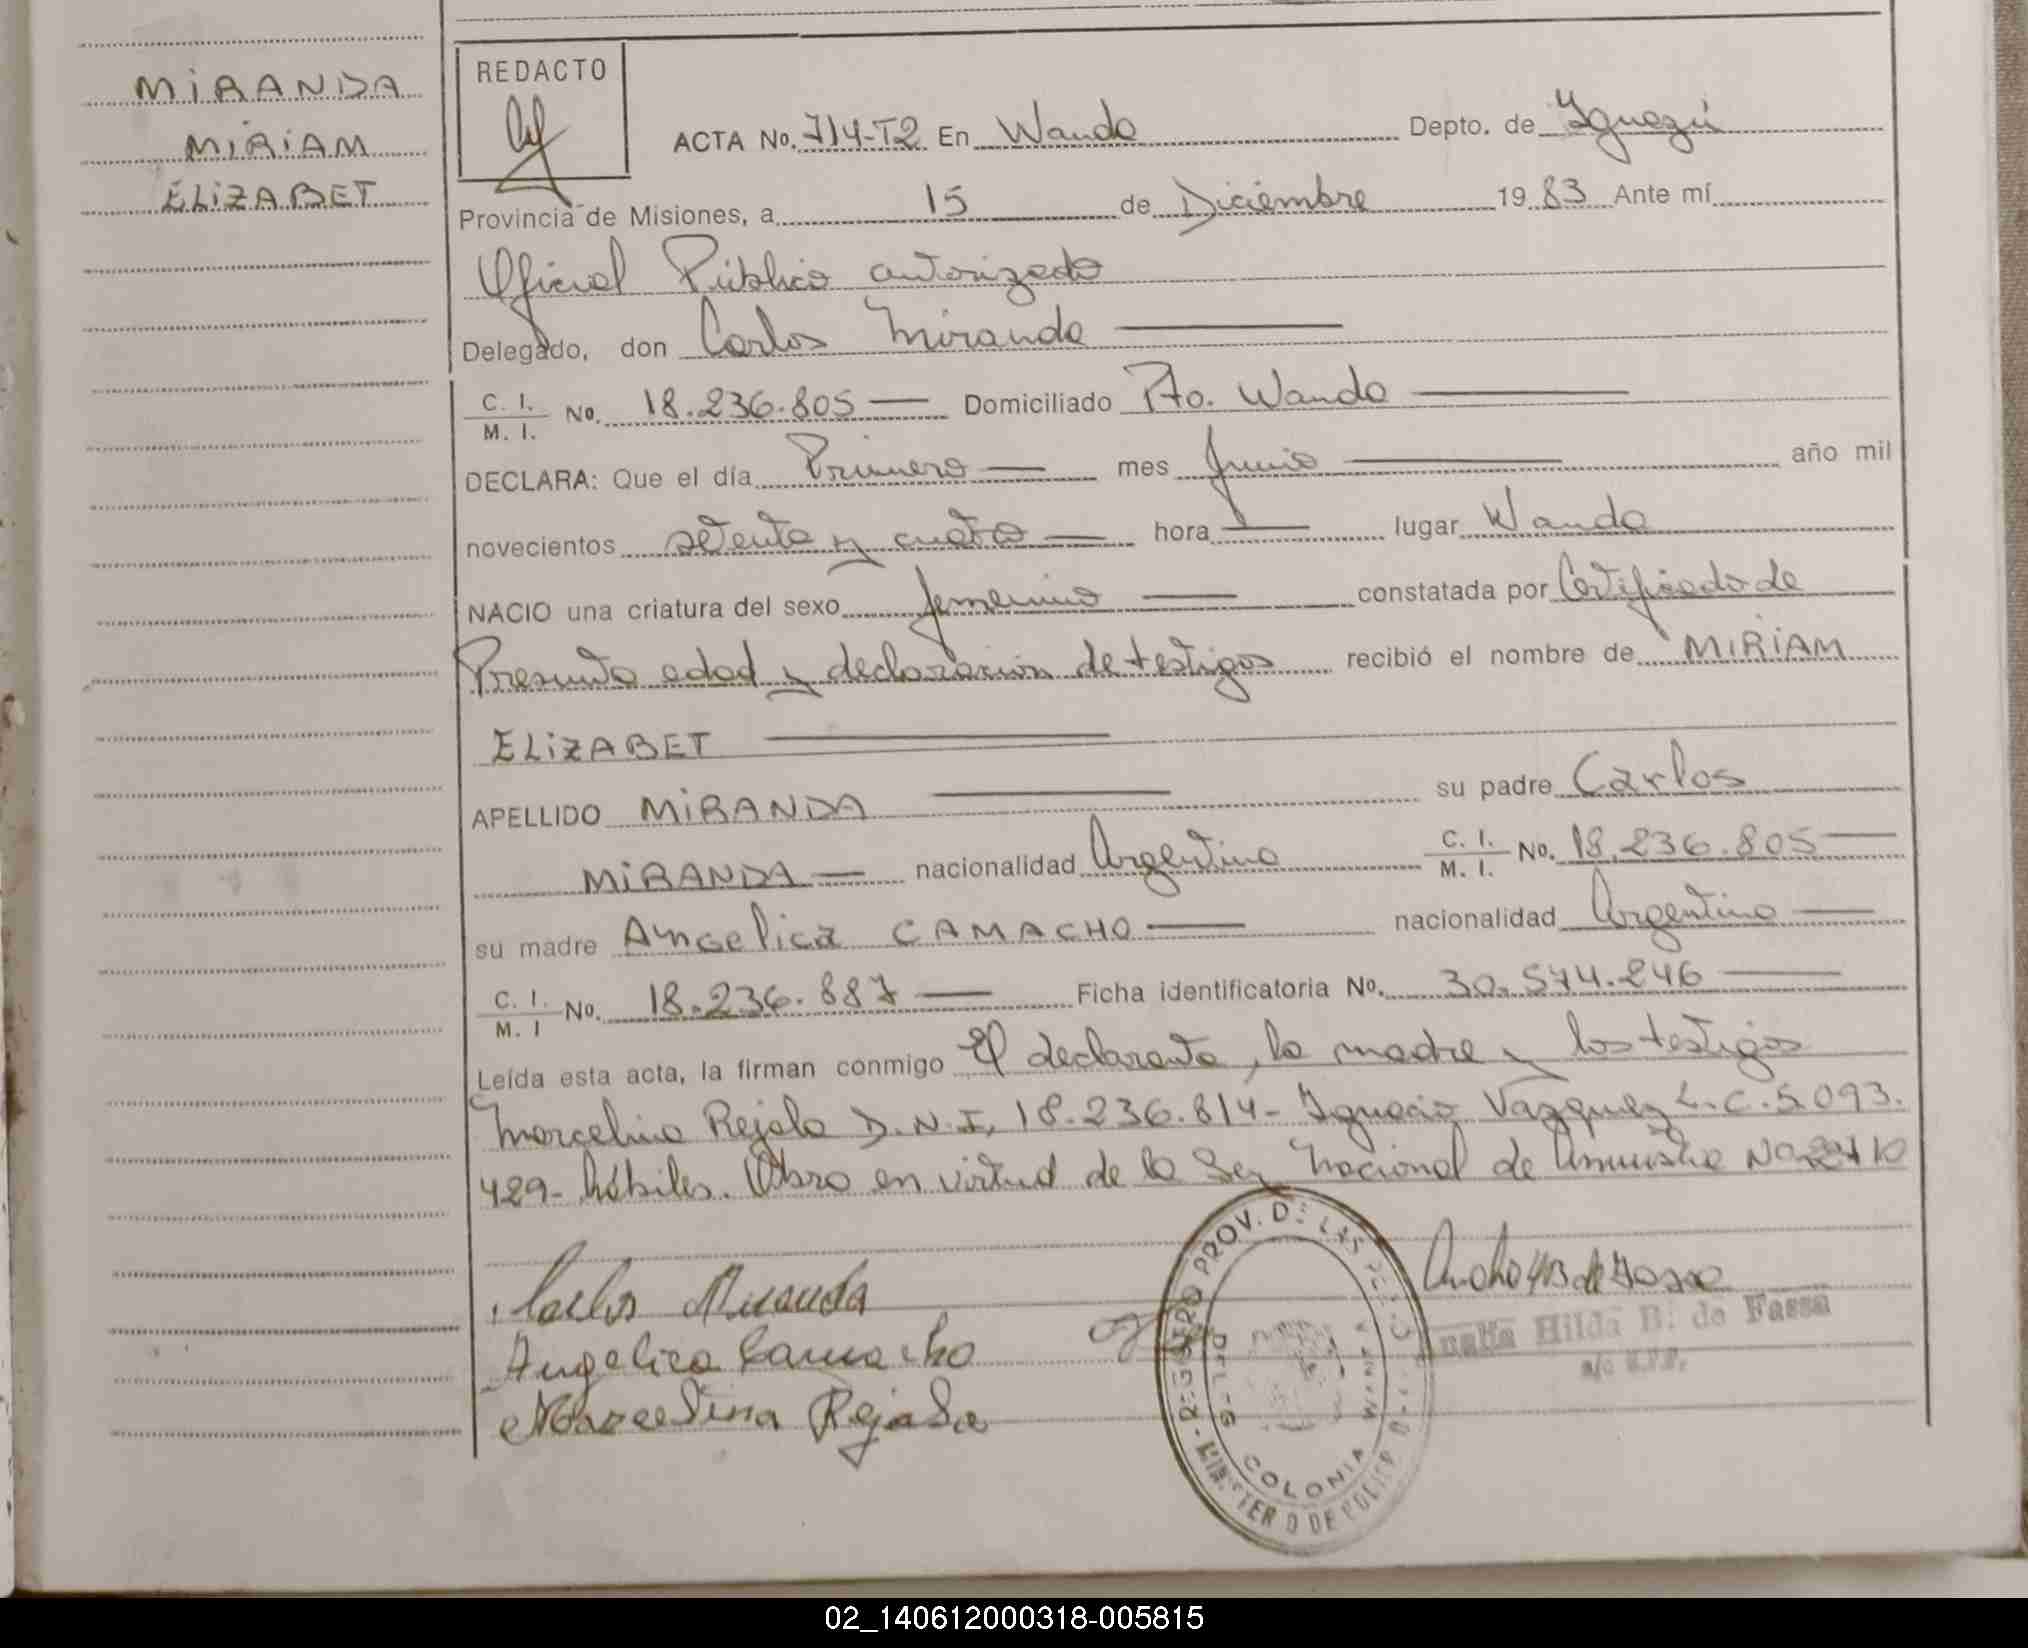 MIRANDA
MIRIAM
ELIZABET
REDACTO
ACTA No. 714-T2 En Wanda Depto. de Iguazú
Provincia de Misiones, a 15 de Diciembre 1983 Ante mí
Oficial Público autorizado
Delegado, don Carlos Miranda
C. I. / M. I. No. 18.236.805 Domiciliado Pto. Wanda
DECLARA: Que el día Primero mes Junio año mil
novecientos setenta y cuatro hora lugar Wanda
NACIO una criatura del sexo femenino constatada por Certificado de
Presunta edad y declaración de testigos recibió el nombre de MIRIAM
ELIZABET
APELLIDO MIRANDA su padre Carlos
MIRANDA nacionalidad Argentina C. I. / M. I. No. 18.236.805
su madre Angelica CAMACHO nacionalidad Argentina
C. I. / M. I No. 18.236.887 Ficha identificatoria No. 30.574.246
Leída esta acta, la firman conmigo El declarante, la madre y los testigos
Marcelino Rejala D.N.I. 18.236.814- Ignacio Vazquez L.C. 5.093.
429- hábiles. Obro en virtud de la Ley Nacional de Amnistia No
Carlos Miranda
Angelica Camacho
Marcelina Rejala
Hilda B. de Fassa
REGISTRO PROV. DE LAS PERS
COLONIA WANDA
MINISTERIO DE
02_140612000318-005815